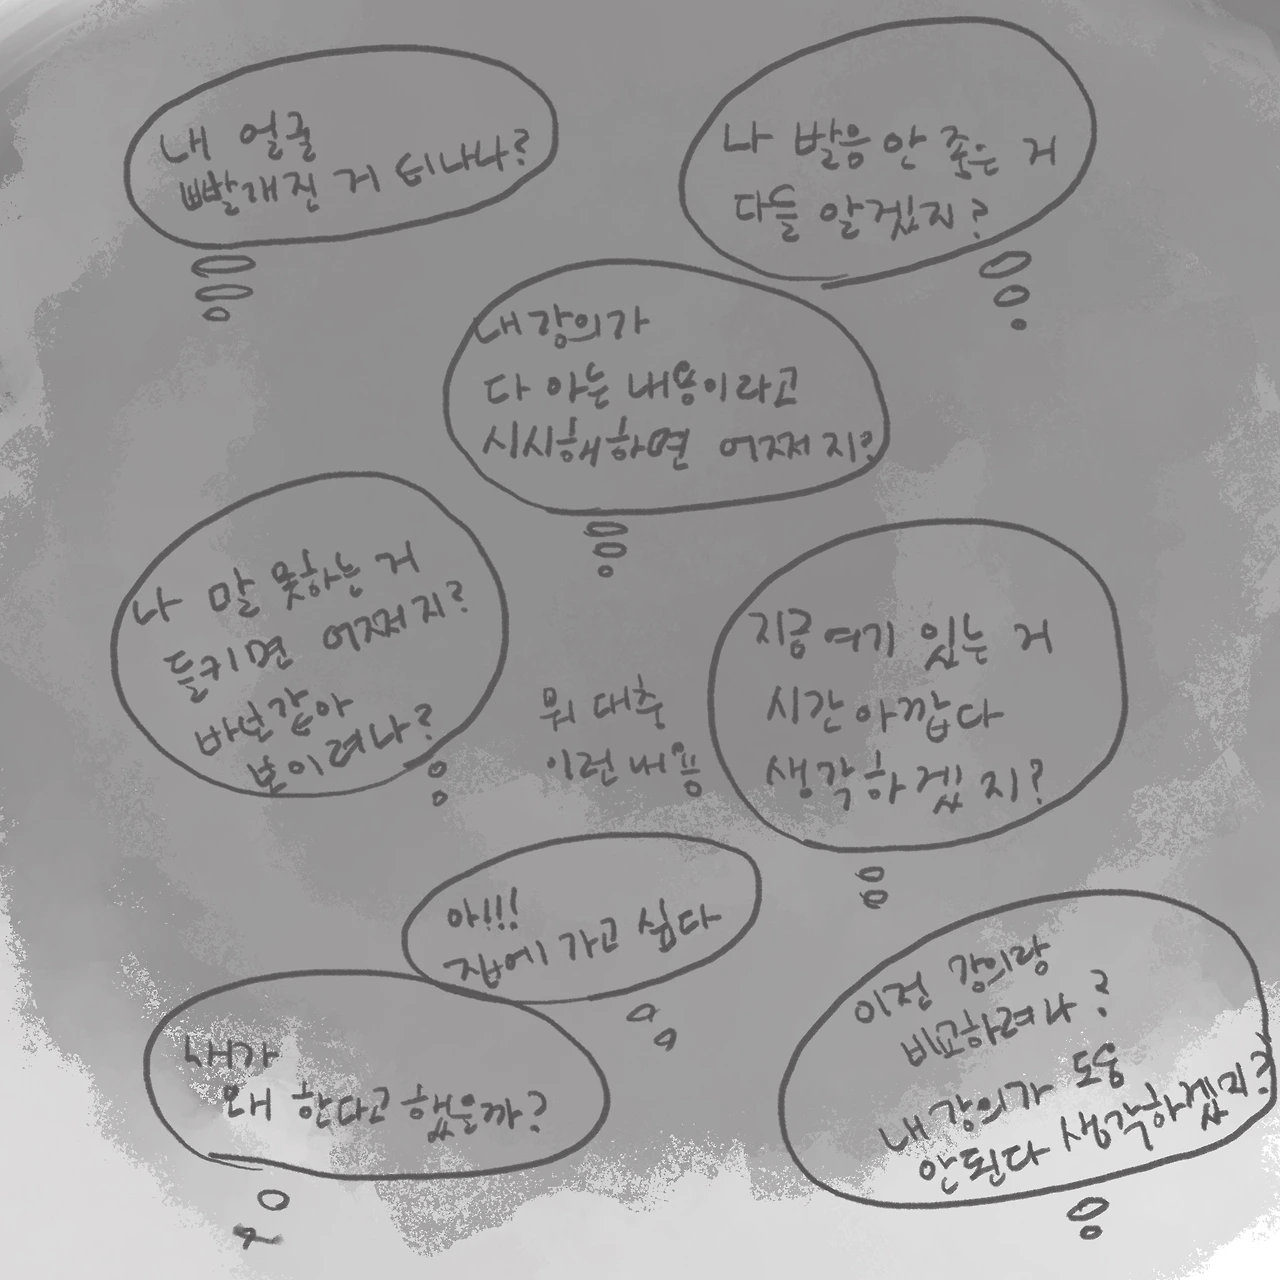 내 얼굴
빨개진 거 티나나?
나 발음 안 좋은 거
다들 알겠지?
내 강의가
다 아는 내용이라고
시시해하면 어쩌지?
나 말 못하는 거
들키면 어쩌지?
바보같아
보이려나?
뭐 대충
이런 내용
지금 여기 있는 거
시간 아깝다
생각하겠지?
아!!!
집에 가고 싶다
내가
왜 한다고 했을까?
이전 강의랑
비교하려나?
내 강의가 도움
안된다 생각하겠지?